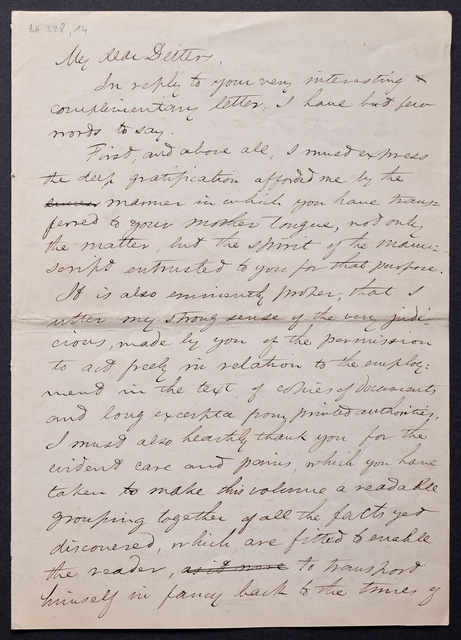 BH 228, 14
My dear Deiters,
In reply to your very interesting &
complimentary letter, I have but few
words to say.
First, and above all, I must express
the deep gratification afforded me by the
manner in which you have trans=
ferred to your mother tongue, not only
the matter, but the spirit of the manu=
script entrusted to you for that purpose.
It is also eminently proper, that I
utter my strong sense of the very judi
cious, made by you of the permission
to act freely in relation to the employ=
ment in the text of copies of documents
and long excerpta from printed authorities.
I must also heartily thank you for the
evident care and pains, which you have
taken to make this volume a readable
grouping together of all the facts yet
discovered, which are fitted to enable
the reader, as it were to transport
himself in fancy back to the times of